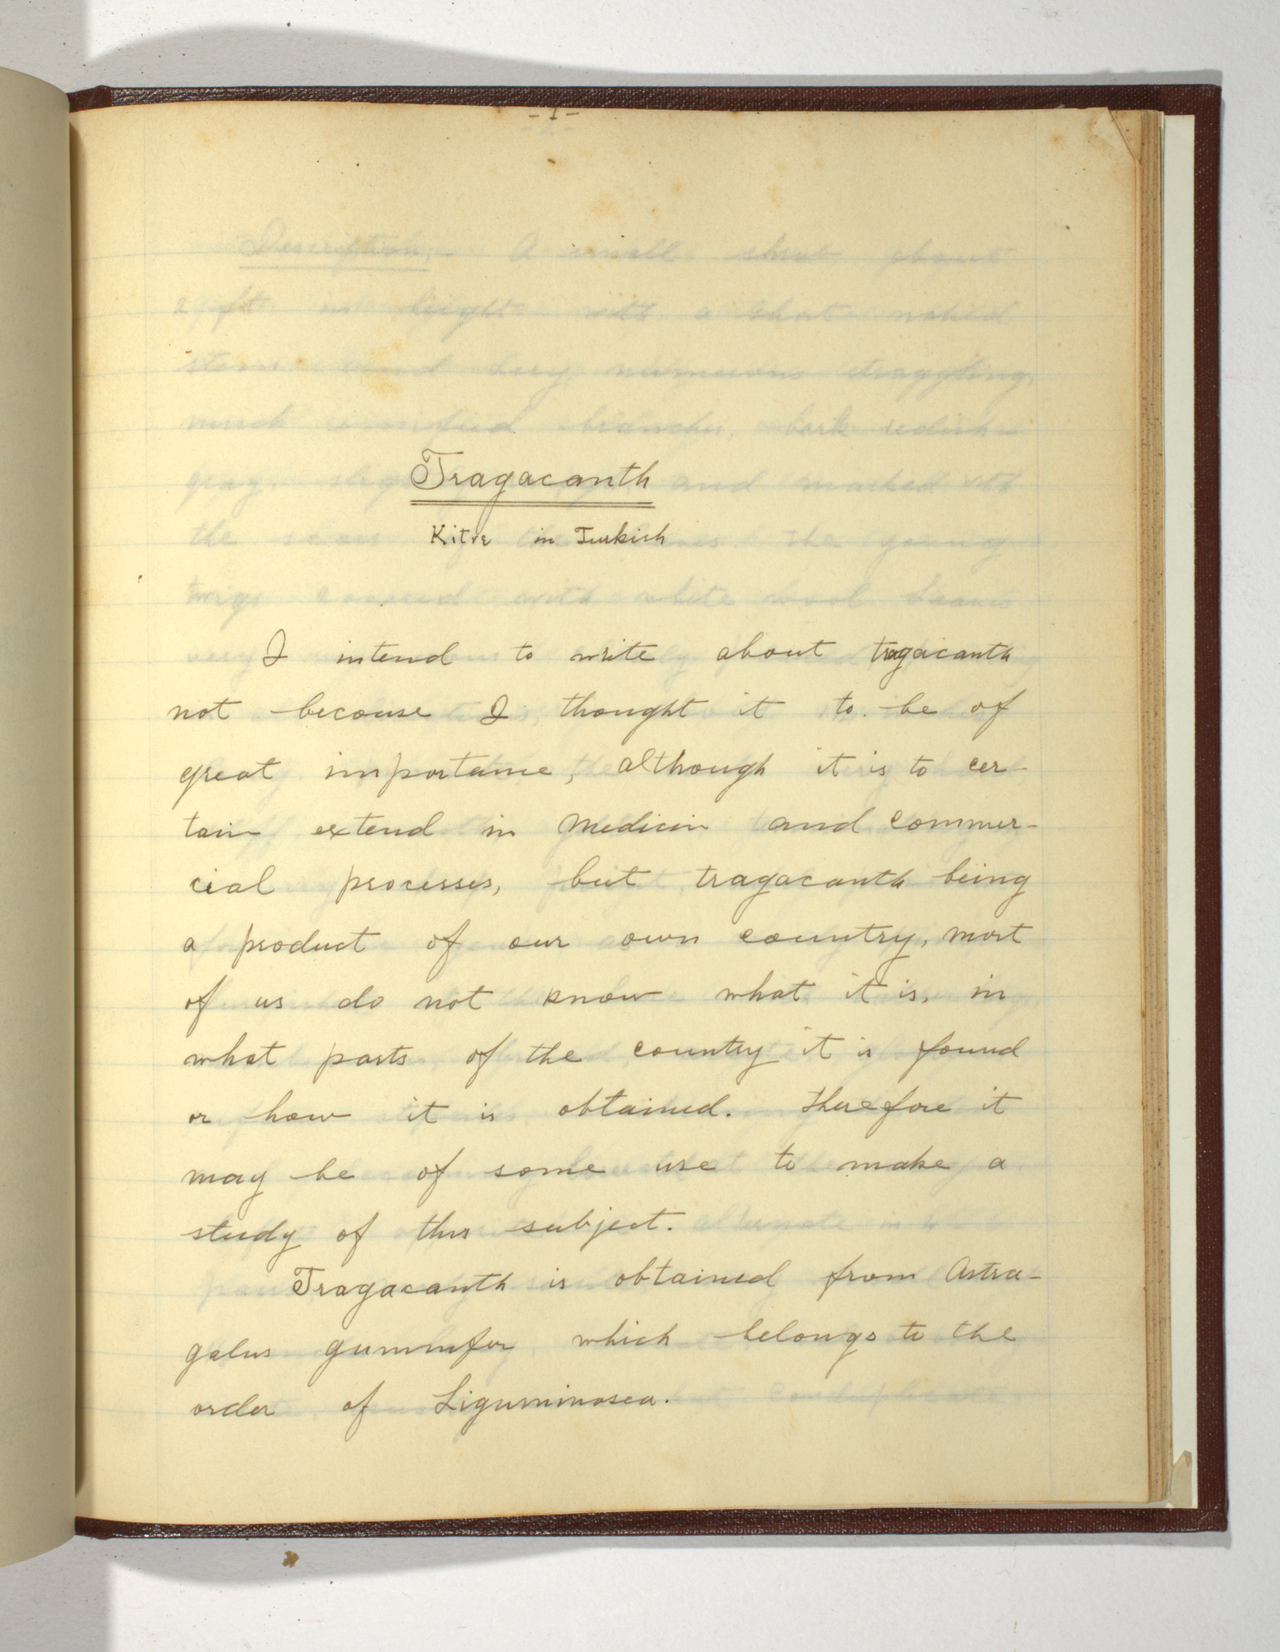 -1-
Tragacanth
Kitre in Turkish
I intend to write about tragacanth
not because I thought it to be of
great importance, although it is to cer-
tain extend in Medicin and commer-
cial processes, but tragacanth being
a product of our own country, most
of us do not know what it is, in
what parts of the country it is found
or how it is obtained. Therefore it
may be of some use to make a
study of this subject.
Tragacanth is obtained from Astra-
galus gummifer which belongs to the
order of Liguminosea.